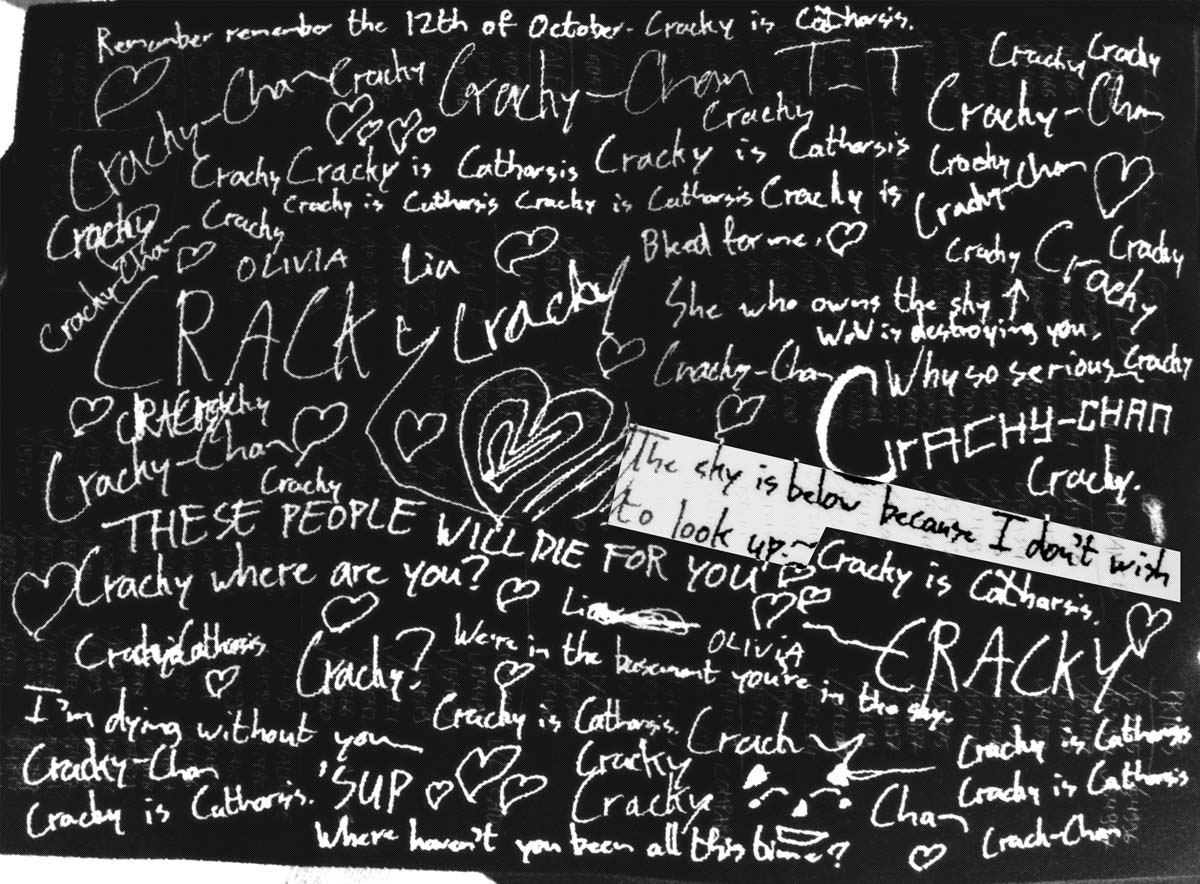 Remember remember the 12th of October. Cracky is Catharsis.
Cracky-Chan
Cracky
Cracky-Chan T_T
Cracky
Cracky Cracky
Cracky-Chan
Cracky Cracky is Catharsis Cracky is Catharsis
Cracky
Cracky-Chan
Cracky is Catharsis Cracky is Catharsis Cracky is
Cracky
Cracky-Chan
Cracky
Bleed for me.
Cracky
Cracky
Cracky
Cracky-Chan
OLIVIA
Lia
CRACKy
Cracky
She who owns the sky
WoW is destroying you.
Cracky-Chan
Why so serious
Cracky
CrACHY-CHAN
Cracky.
CRACKY
Cracky
Cracky-Chan
Cracky
The sky is below because I don't wish
to look up.~
THESE PEOPLE WILL DIE FOR YOU
Cracky where are you?
Cracky is Catharsis.
Lia
OLIVIA
CRACKY
Cracky is Catharsis.
Cracky?
We're in the basement you're in the sky.
I'm dying without you
Cracky is Catharsis.
Cracky
Cracky is Catharsis
Cracky-Chan
'SUP
Cracky
Cracky is Catharsis
Cracky is Catharsis.
Cracky
Chan
Crach-Chan
Where haven't you been all this time?